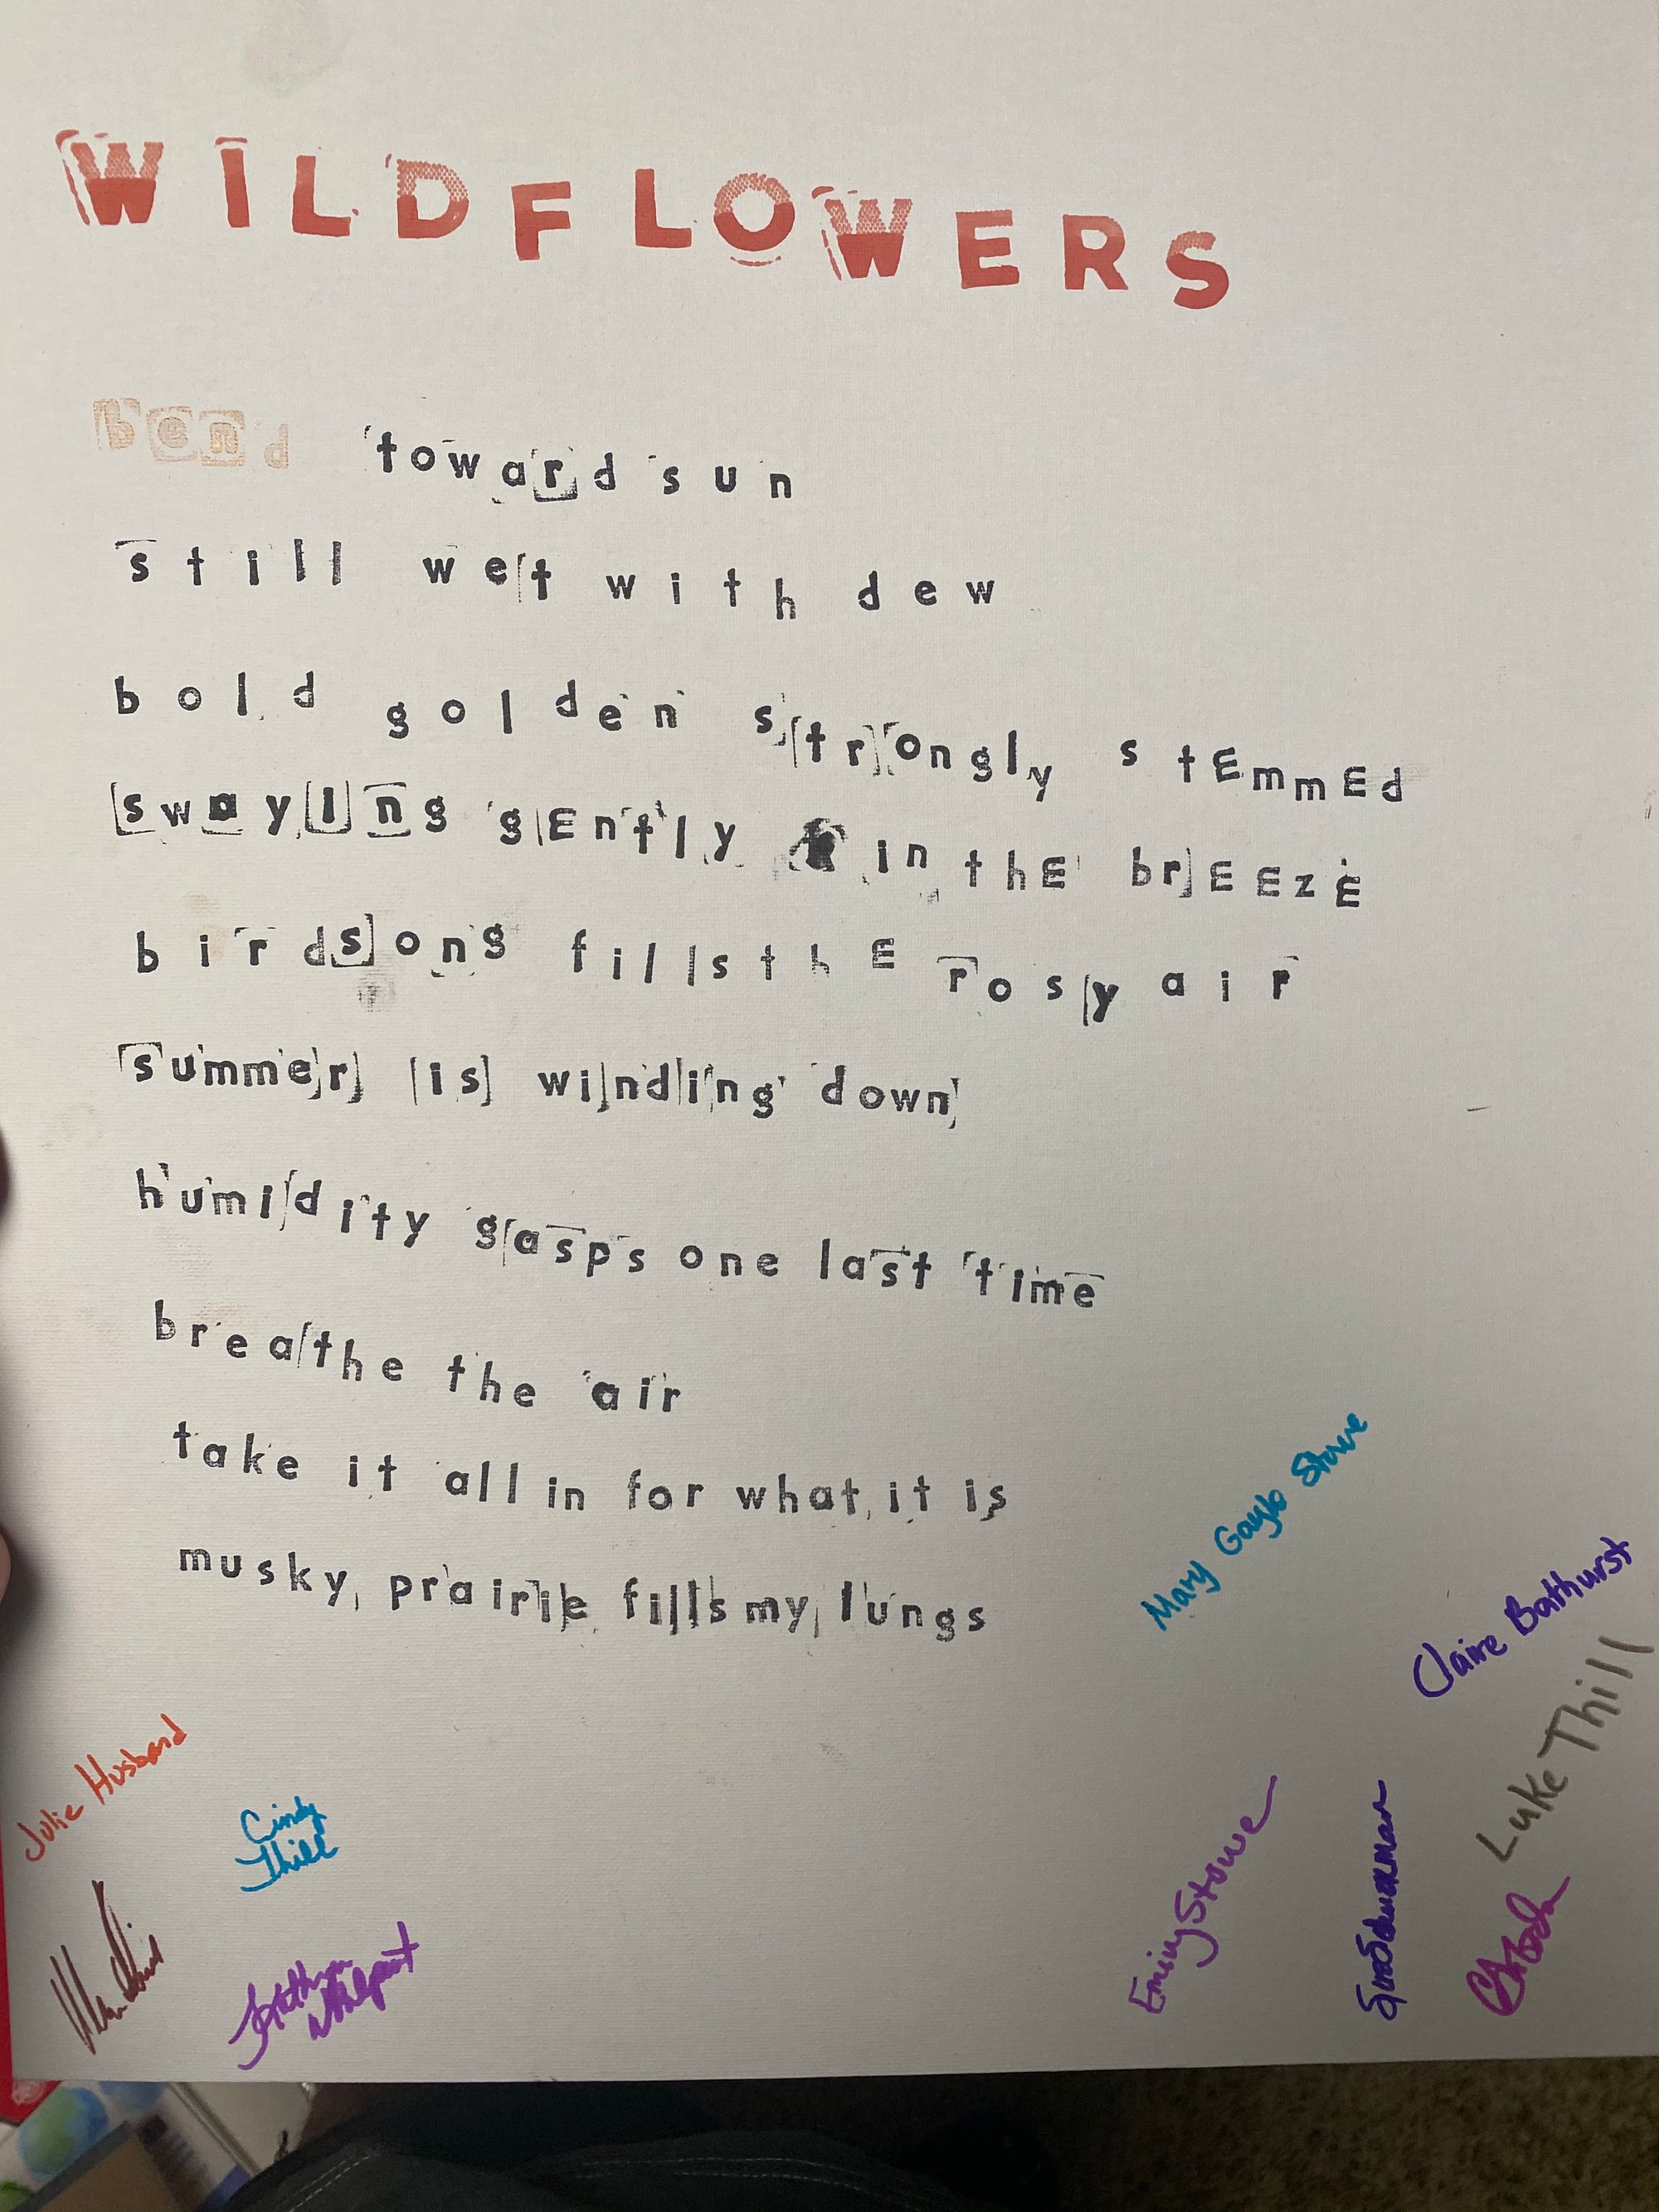 WILDFLOWERS
bend toward sun
still wet with dew
bold golden strongly stEmmEd
swayIng gEntly in thE brEEzE
birdsong fills thE rosy air
summer is winding down
humidity gasps one last time
breathe the air
take it all in for what it is
musky prairie fills my lungs
Mary Gayle Stowe
Claire Bathurst
Luke Thill
Julie Husband
Cindy
Thill
Emily Stowe